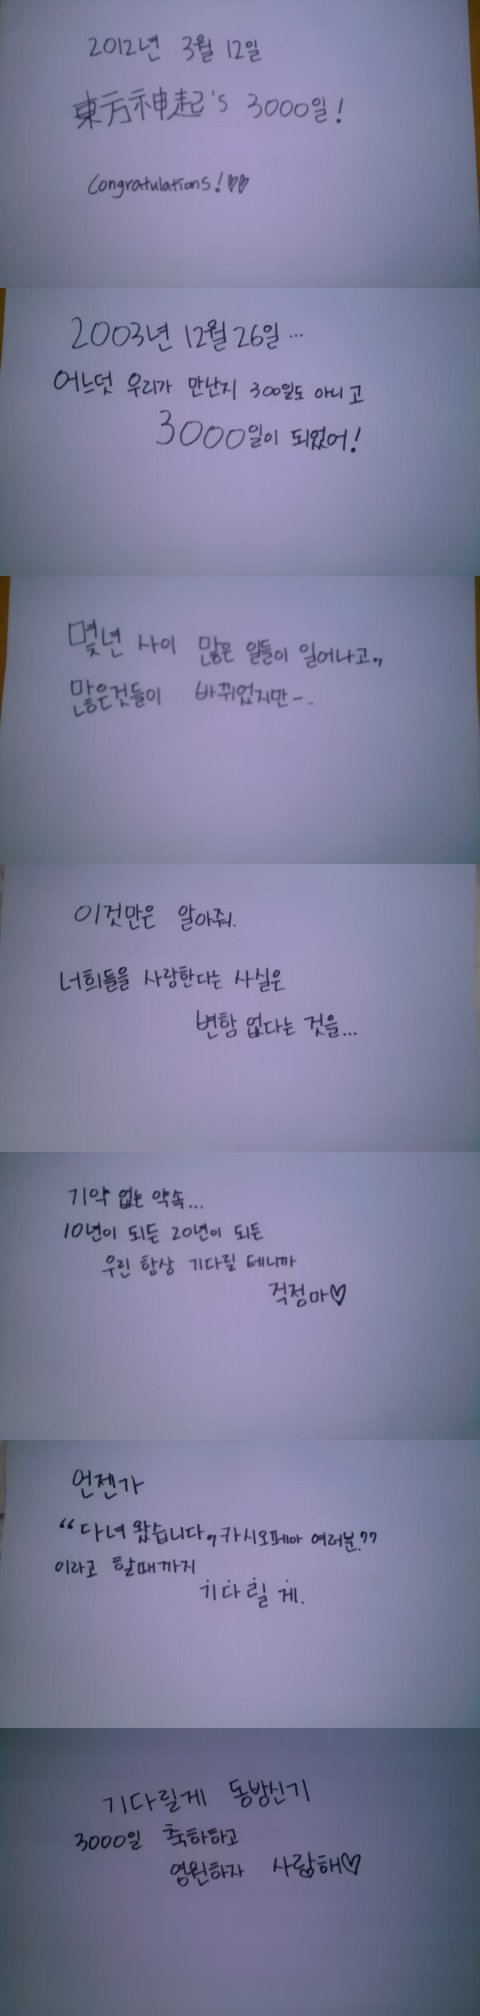 2012년 3월 12일
東方神起's 3000일!
Congratulations!♥♥
2003년 12월 26일...
어느덧 우리가 만난지 300일도 아니고
3000일이 되었어!
몇년 사이 많은 일들이 일어나고,,
많은것들이 바뀌었지만-..
이것만은 알아줘.
너희들을 사랑한다는 사실은
변함 없다는 것을...
기약 없는 약속...
10년이 되든 20년이 되든
우린 항상 기다릴 테니까
걱정마♡
언젠가
“다녀 왔습니다, 카시오페아 여러분.”
이라고 할때까지
기다릴 게.
기다릴게 동방신기
3000일 축하하고
영원하자 사랑해♡